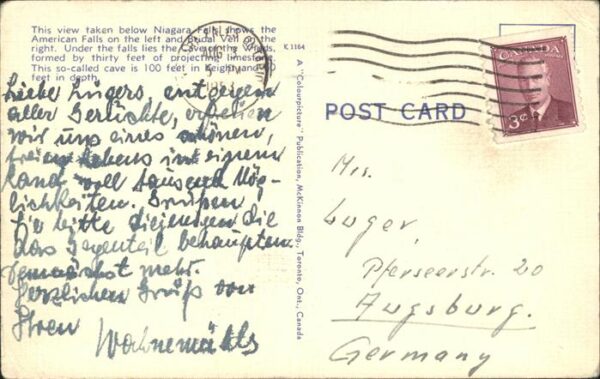 This view taken below Niagara Falls shows the
American Falls on the left and Bridal Veil on the
right. Under the falls lies the Cave of the Winds,
formed by thirty feet of projecting limestone.
This so-called cave is 100 feet in height and
feet in depth.
K 1164
A "Colourpicture" Publication, McKinnon Bldg., Toronto, Ont., Canada
Liebe Lugers, entgegen
aller Gerüchte, erfreuen
wir uns eines schönen,
freien Lebens in einem
Land voll tausend Mög-
lichkeiten. Grüßen
Sie bitte diejenigen die
das Gegenteil behaupten.
Demnächst mehr.
Herzlichen Gruß von
Ihren
Wohnemähls
POST CARD
CANADA
3¢
Mrs.
Luger,
Pferseerstr. 20
Augsburg.
Germany